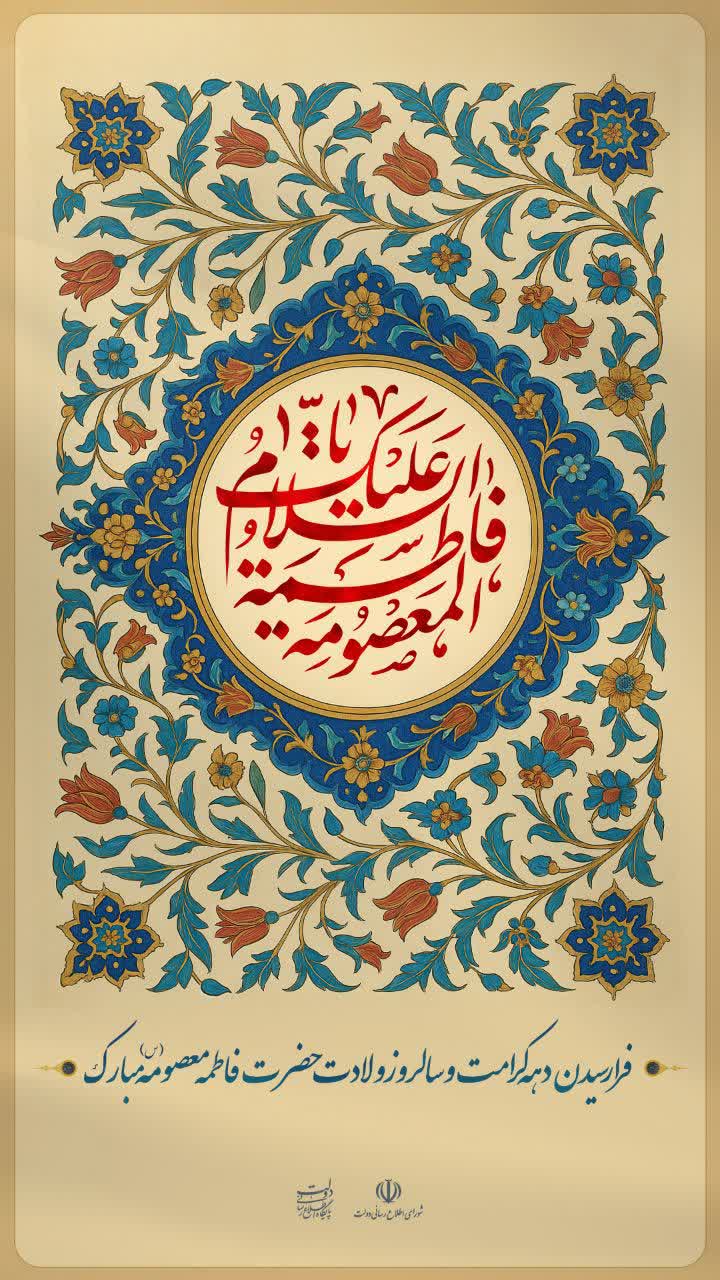 السلام علیک یا
فاطمة
المعصومة
فرارسیدن دهه کرامت و سالروز ولادت حضرت فاطمه معصومه (س) مبارک
شورای اطلاع رسانی دولت
پایگاه اطلاع رسانی دولت